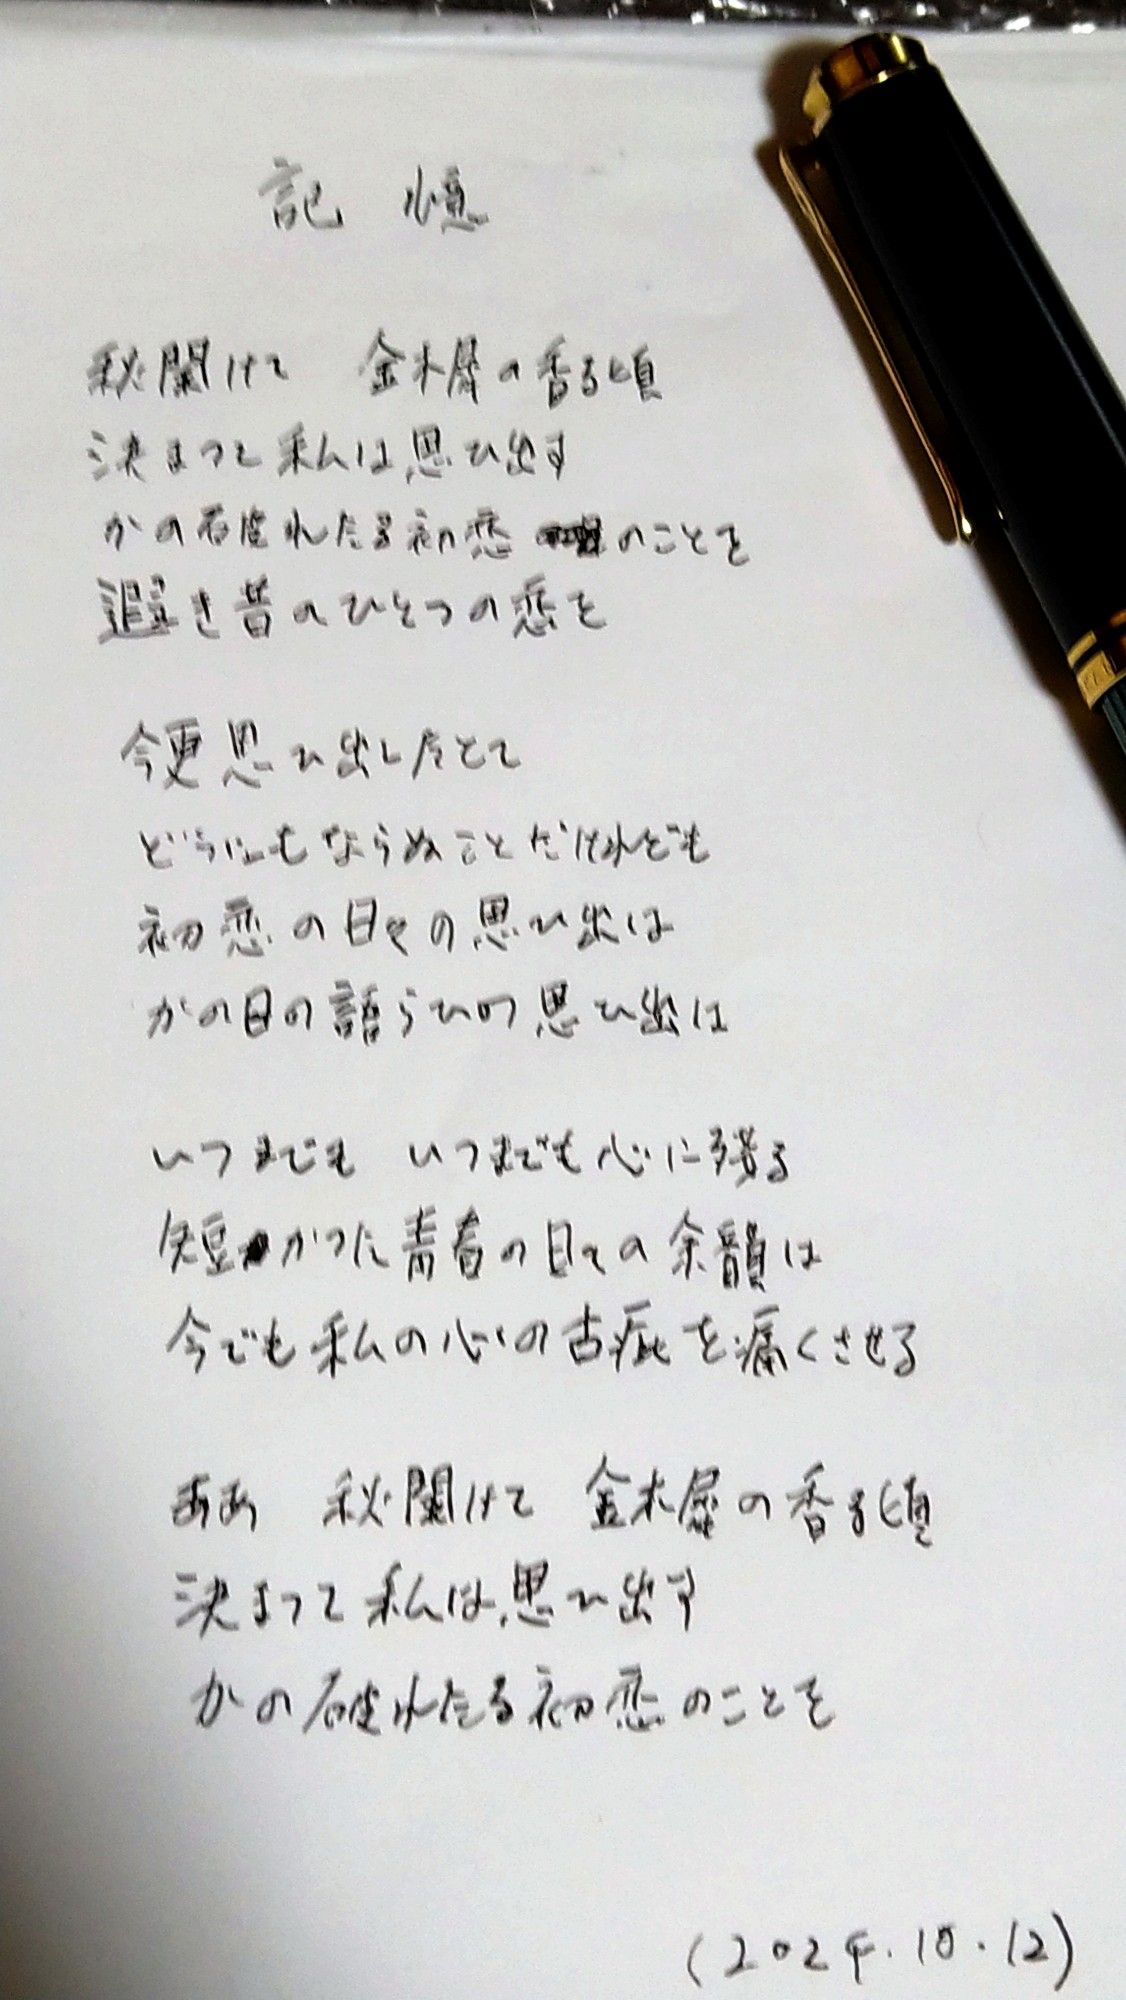 記憶
秋闌けて 金木犀の香る頃
決まつて私は思ひ出す
かの破れたる初恋のことを
遐き昔のひとつの恋を
今更思ひ出したとて
どうにもならぬことだけれども
初恋の日々の思ひ出は
かの日の語らひの思ひ出は
いつまでも いつまでも心に残る
短かつた青春の日々の余韻は
今でも私の心の古疵を痛くさせる
ああ 秋闌けて 金木犀の香る頃
決まつて私は思ひ出す
かの破れたる初恋のことを
(2024.10.12)